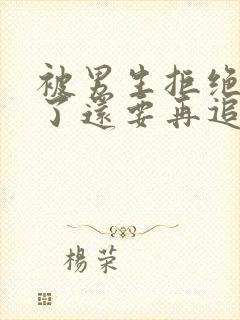 被男生拒绝
了還要再追
楊荣